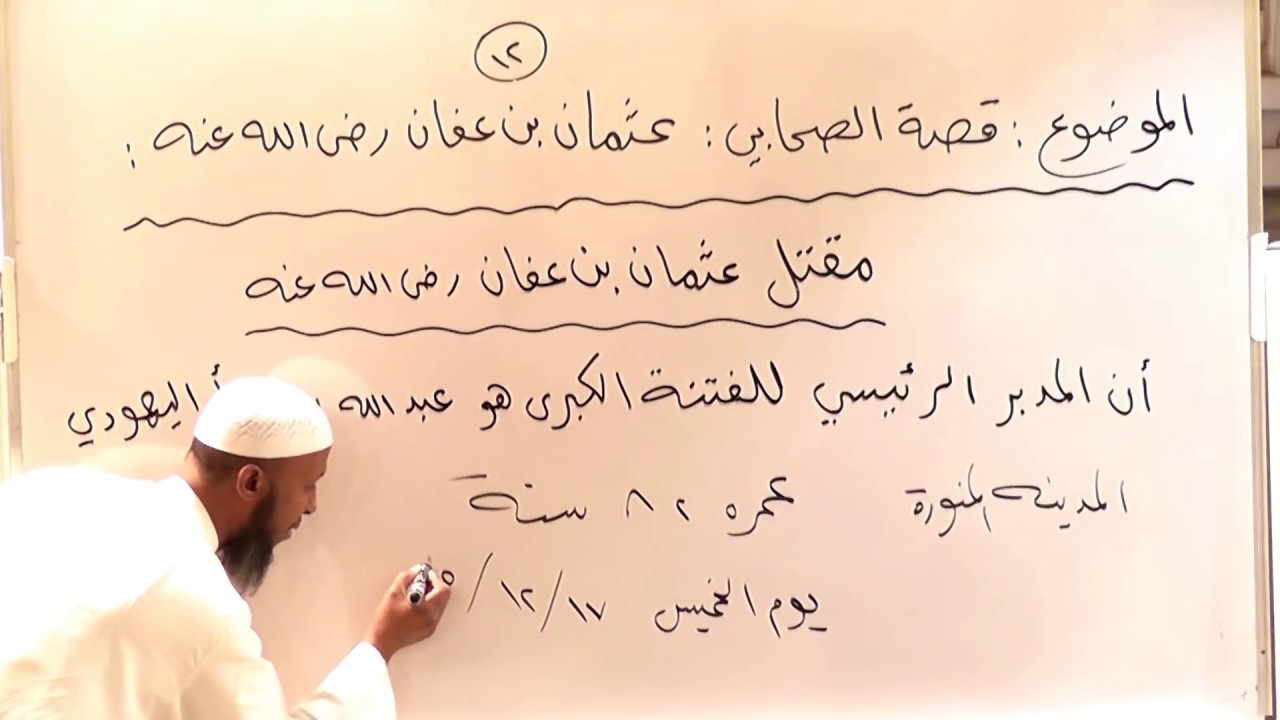 ١٢
الموضوع : قصة الصحابي : عثمان بن عفان رضى الله عنه :
مقتل عثمان بن عفان رضى الله عنه
أن المدبر الرئيسي للفتنة الكبرى هو عبد الله أ اليهودي
المدينه المنورة عمره ٨٢ سنة
يوم الخميس ١٧/١٢/٥